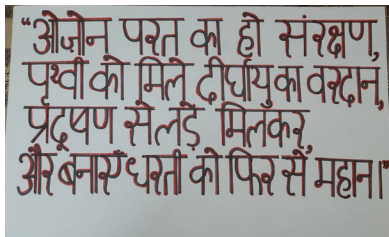 “ओज़ोन परत का हो संरक्षण,
पृथ्वी को मिले दीर्घायु का वरदान,
प्रदूषण से लड़ें मिलकर,
और बनाएँ धरती को फिर से महान।”